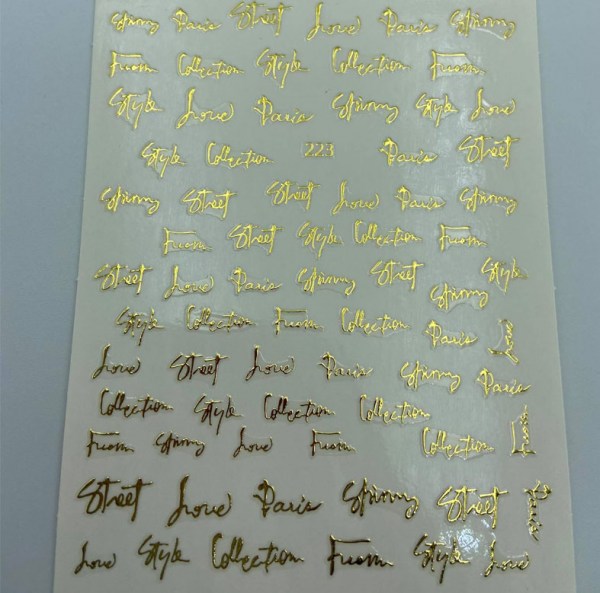 Shinny Paris Street Love Paris Shinny
From Collection Style Collection From
Style Love Paris Shinny Style Love
Style Collection 223 Paris Street
Shinny Street Street Love Paris Shinny
From Street Style Collection From
Street Love Paris Shinny Street Shinny Style
Style Collection From Collection Paris Love
Love Street Love Paris Shinny Paris
Collection Style Collection Collection
From Shinny Love From Collection From
Street Love Paris Shinny Street Paris
Love Style Collection From Style Love